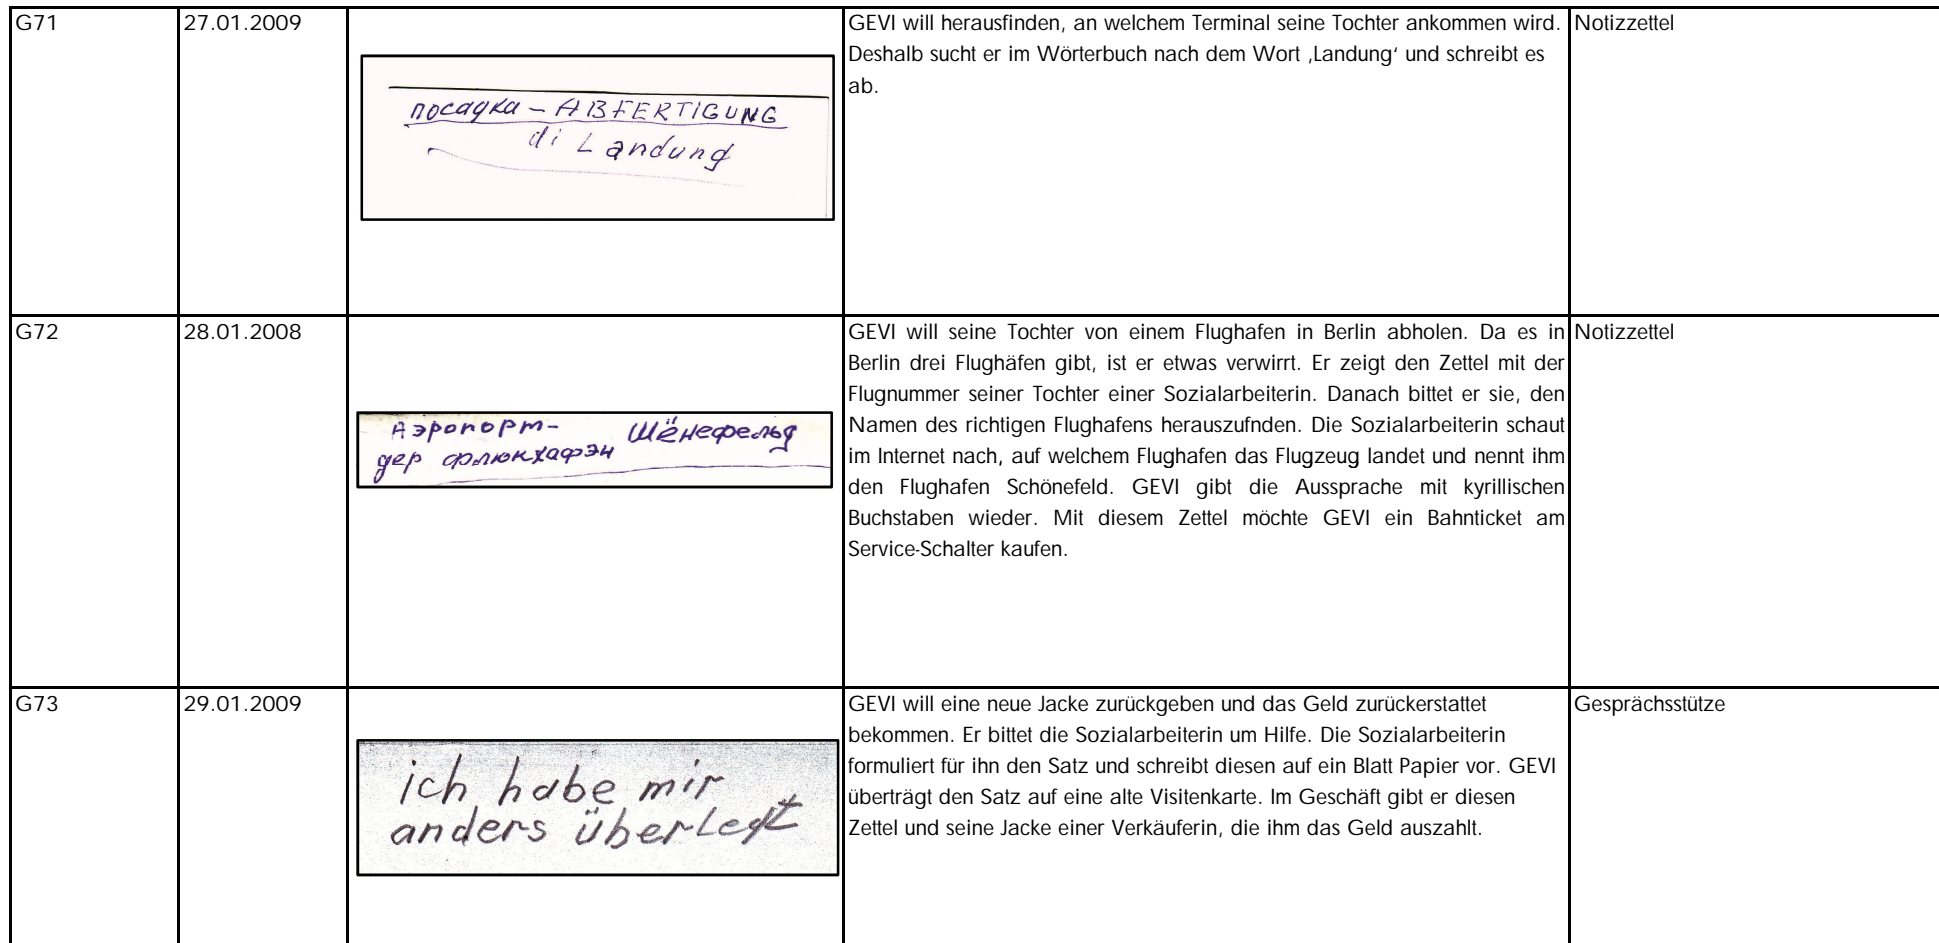 G71
27.01.2009
посадка – ABFERTIGUNG
di Landung
GEVI will herausfinden, an welchem Terminal seine Tochter ankommen wird.
Deshalb sucht er im Wörterbuch nach dem Wort ‚Landung‘ und schreibt es
ab.
Notizzettel
G72
28.01.2008
Аэропорт- Шёнефельд
дер флюкхафэн
GEVI will seine Tochter von einem Flughafen in Berlin abholen. Da es in
Berlin drei Flughäfen gibt, ist er etwas verwirrt. Er zeigt den Zettel mit der
Flugnummer seiner Tochter einer Sozialarbeiterin. Danach bittet er sie, den
Namen des richtigen Flughafens herauszufnden. Die Sozialarbeiterin schaut
im Internet nach, auf welchem Flughafen das Flugzeug landet und nennt ihm
den Flughafen Schönefeld. GEVI gibt die Aussprache mit kyrillischen
Buchstaben wieder. Mit diesem Zettel möchte GEVI ein Bahnticket am
Service-Schalter kaufen.
Notizzettel
G73
29.01.2009
ich habe mir
anders überlegt
GEVI will eine neue Jacke zurückgeben und das Geld zurückerstattet
bekommen. Er bittet die Sozialarbeiterin um Hilfe. Die Sozialarbeiterin
formuliert für ihn den Satz und schreibt diesen auf ein Blatt Papier vor. GEVI
überträgt den Satz auf eine alte Visitenkarte. Im Geschäft gibt er diesen
Zettel und seine Jacke einer Verkäuferin, die ihm das Geld auszahlt.
Gesprächsstütze